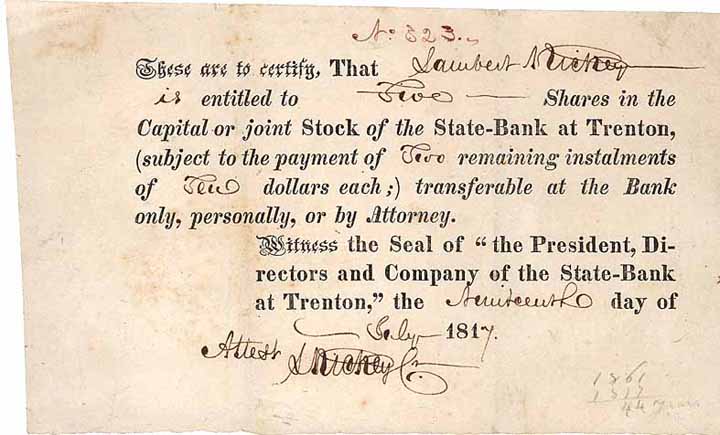 No: 323.
These are to certify, That Lambert Rickey
is entitled to Five Shares in the
Capital or joint Stock of the State-Bank at Trenton,
(subject to the payment of Two remaining instalments
of Ten dollars each;) transferable at the Bank
only, personally, or by Attorney.
Witness the Seal of "the President, Di-
rectors and Company of the State-Bank
at Trenton," the Nineteenth day of
July 1817.
Attest L Rickey Cr
1861
1817
44 years